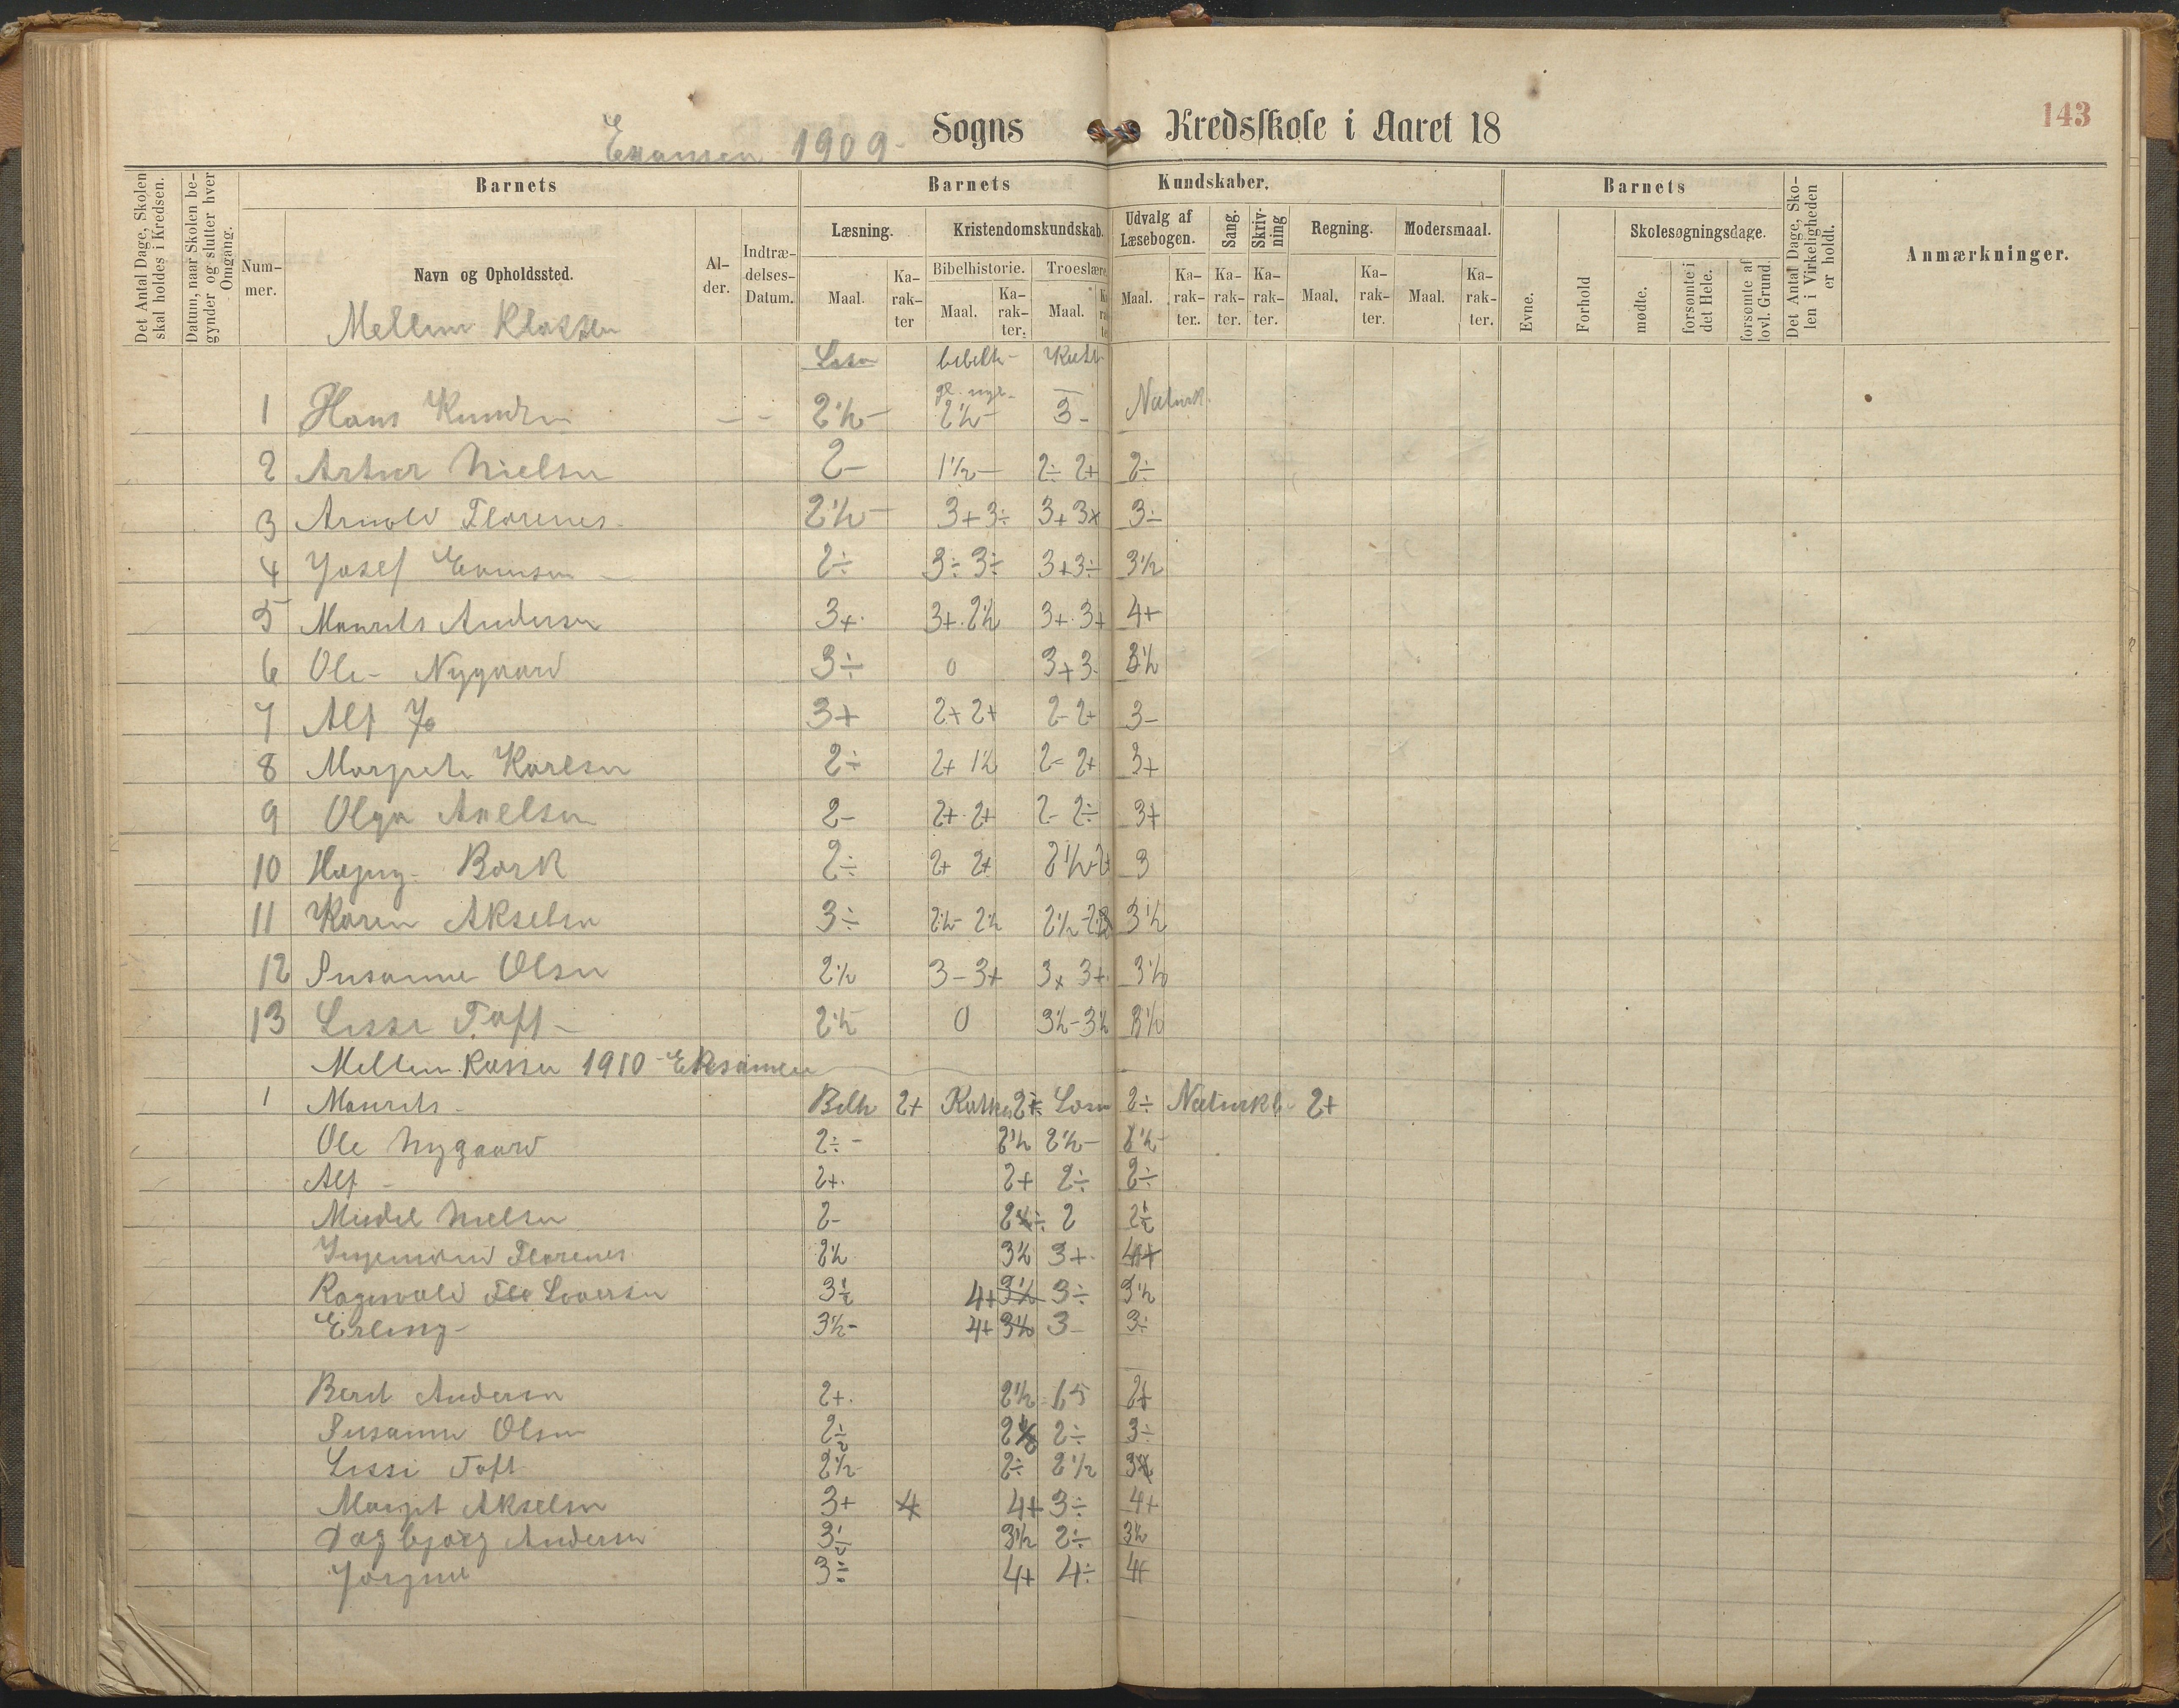 143
Examen 1909 Sogns Kredsskole i Aaret 18
Det Antal Dage, Skolen skal holdes i Kredsen.
Datum, naar Skolen begynder og slutter hver Omgang.
Barnets
Nummer.
Navn og Opholdssted.
Alder.
Indtrædelses-Datum.
Barnets Kundskaber.
Læsning. Kristendomskundskab. Udvalg af Læsebogen. Sang. Skrivning Regning. Modersmaal.
Bibelhistorie. Troeslære
Maal. Karakter Maal. Karakter. Maal. Maal. Karakter. Karakter. Karakter. Maal. Karakter. Maal. Karakter.
Barnets
Evne.
Forhold
Skolesøgningsdage.
mødte.
forsømte i det Hele.
forsømte af lovl. Grund.
Det Antal Dage, Skolen i Virkeligheden er holdt.
Anmærkninger.
Mellem Klassen
Læsn bibelh- Kat
gl. nye. Naturk.
1 Hans Knudsen 2½- 2½- 3-
2 Artur Nielsen 2- 1½- 2÷ 2+ 2÷
3 Arnold Florenes 2½- 3+ 3÷ 3+ 3+ 3÷
4 Josef Evensen 2÷ 3÷ 3÷ 3+ 3÷ 3½
5 Maurits Andersen 3+. 3+. 2½ 3+. 3+ 4+
6 Ole Nygaard 3÷ 0 3+ 3- 3½
7 Alf 3+ 2+ 2+ 2- 2+ 3-
8 Margrete Karlsen 2÷ 2+ 1½ 2- 2+ 3+
9 Olga Axelsen 2- 2+ 2+ 2- 2÷ 3+
10 Bork 2÷ 2+ 2+ 2½ 2+ 3
11 Karen Akselsen 3÷ 2½- 2½ 2½ 3½
12 Susanne Olsen 2½ 3- 3+ 3+ 3+ 3½
13 Lissi Toft 2½ 0 3½-3½ 3½
Mellem Klassen 1910 - Eksamen
1 Maurits Bibh 2+ Katk 2÷ Læsn 2÷ Naturk 2+
Ole Nygaard 2÷- 2½ 2½- 2½-
Alf - 2+. 2+ 2÷ 2÷
Nielsen 2- 2÷ 2 2½
Ingemund Florenes 2½ 3½ 3+. 4+
Ragnvald Flo Loversen 3½ 4+ 3½ 3÷ 3½
Erling 3½- 4+ 3½ 3- 3÷
Berit Andersen 2+. 2½ 1.5 2+
Susanne Olsen 2½ 2½ 2÷ 3÷
Lissi Toft 2½ 2÷ 2½ 3
Margit Akselsen 3+ 4 4+ 3÷ 4+
Dagbjørg Andersen 3½ 3½ 2÷ 3½
Jørgine 3÷ 4+ 4÷ 4+